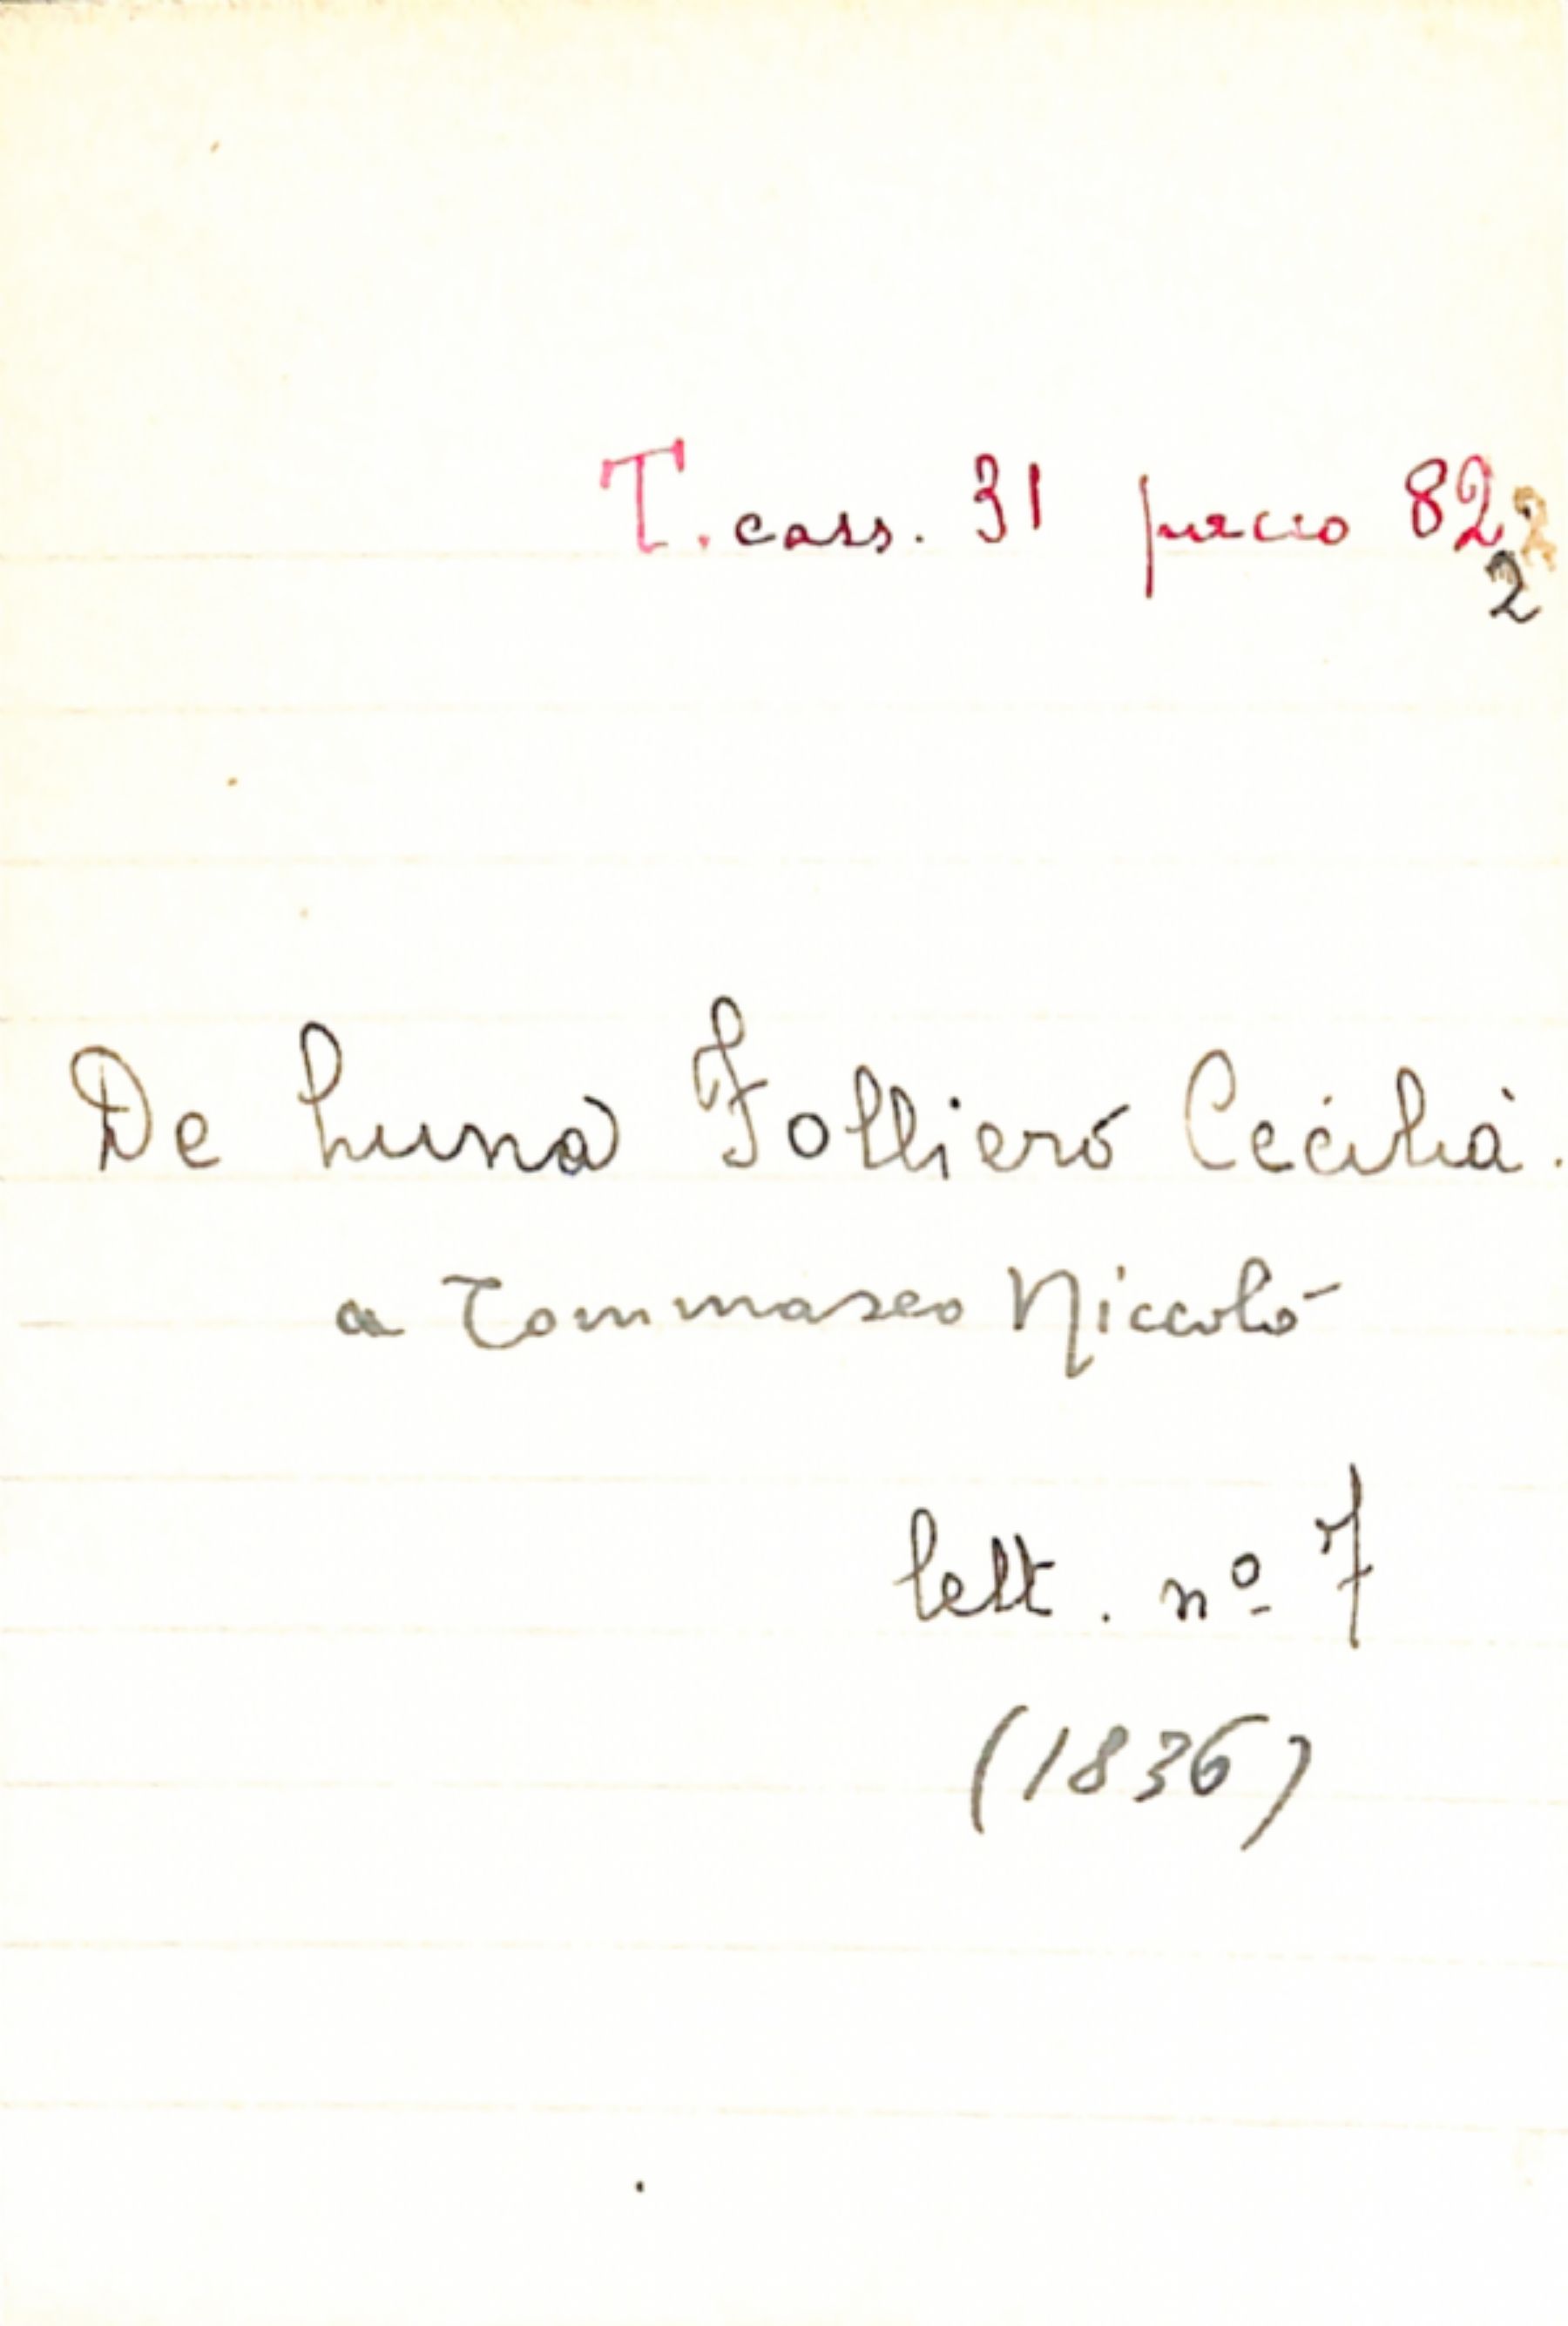 T. cass. 31 pacco 82
2
De Luna Folliero Cecilia.
a Tommaseo Niccolò
lett. nº 7
(1836)